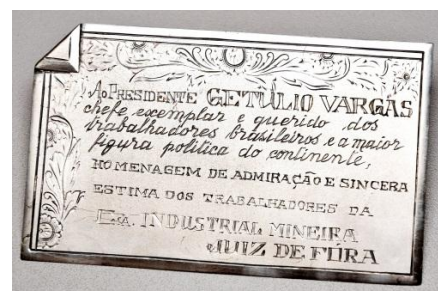 Ao PRESIDENTE GETÚLIO VARGAS
chefe exemplar e querido dos
trabalhadores brasileiros e a maior
figura politica do continente,
HOMENAGEM DE ADMIRAÇÃO E SINCERA
ESTIMA DOS TRABALHADORES DA
Cia. INDUSTRIAL MINEIRA
JUIZ DE FÓRA